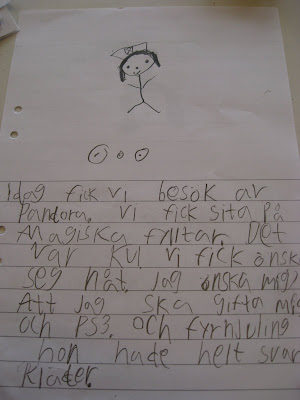 Idag fick vi besök av
Pandora. vi fick sita på
Magiska filtar. Det
var kul vi fick önska
seg nåt. jag önska mig
Att jag ska gifta mig
och PS3. och fyrhjuling
hon hade helt svar
kläder.